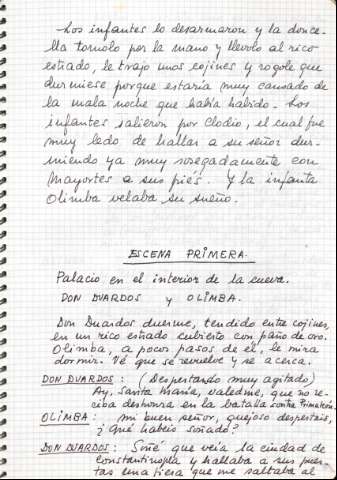 Los infantes lo desarmaron y la donce-
lla tomolo por la mano y llevolo al rico
estrado, le trajo unos cojines y rogole que
durmiese porque estaria muy cansado de
la mala noche que habia habido. Los
infantes salieron por Clodio, el cual fue
muy ledo de hallar a su señor dur-
miendo ya muy sosegadamente con
Mayortes a sus piés. Y la infanta
Olimba velaba su sueño.
ESCENA PRIMERA.
Palacio en el interior de la cueva.
DON DUARDOS y OLIMBA.
Don Duardos duerme, tendido entre cojines,
en un rico estrado cubierto con paño de oro.
Olimba, a pocos pasos de él, le mira
dormir. Vé que se revuelve y se acerca.
DON DUARDOS: (Despertando muy agitado)
Ay, Santa Maria, valedme, que no re-
ciba deshonra en la batalla contra Primaleón.
OLIMBA: Mi buen señor, quejoso despertais,
¿Qué habeis soñado?
DON DUARDOS: Soñé que veía la ciudad de
Constantinopla y hallaba a sus puer-
tas una fiera que me saltaba al